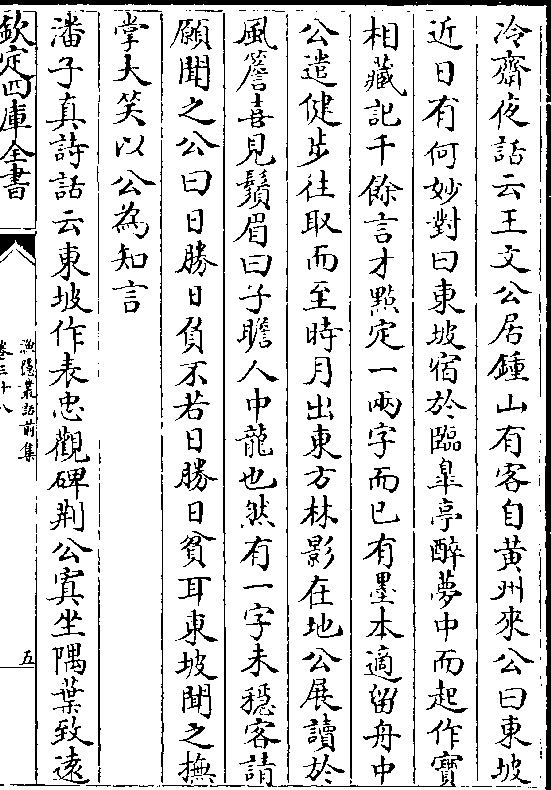 冷齋夜話云王文公居鍾山有客自黄州來公曰東坡
近日有何妙對曰東坡宿於臨臯亭醉夢中而起作寳
相藏記千餘言才點定一兩字而已有墨本適留舟中
公遣健步往取而至時月出東方林影在地公展讀於
風簷喜見鬚眉曰子瞻人中龍也然有一字未穩客請
願聞之公曰日勝日負不若日勝日貧耳東坡聞之撫
掌大笑以公為知言
潘子真詩話云東坡作表忠觀碑荆公寘坐隅葉致遠
欽定四庫全書
漁隱叢話前集
卷三十八
五